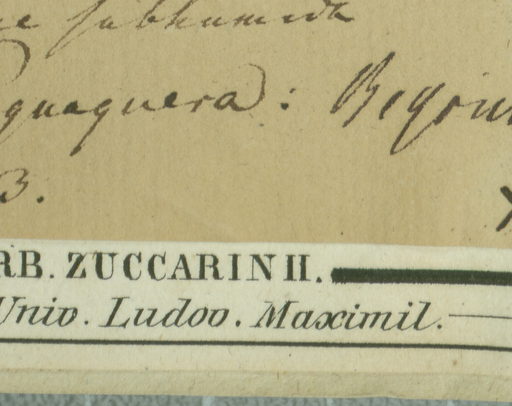 subhumida
guaquera: Begoni
3.
RB. ZUCCARINII.
Univ. Ludov. Maximil.